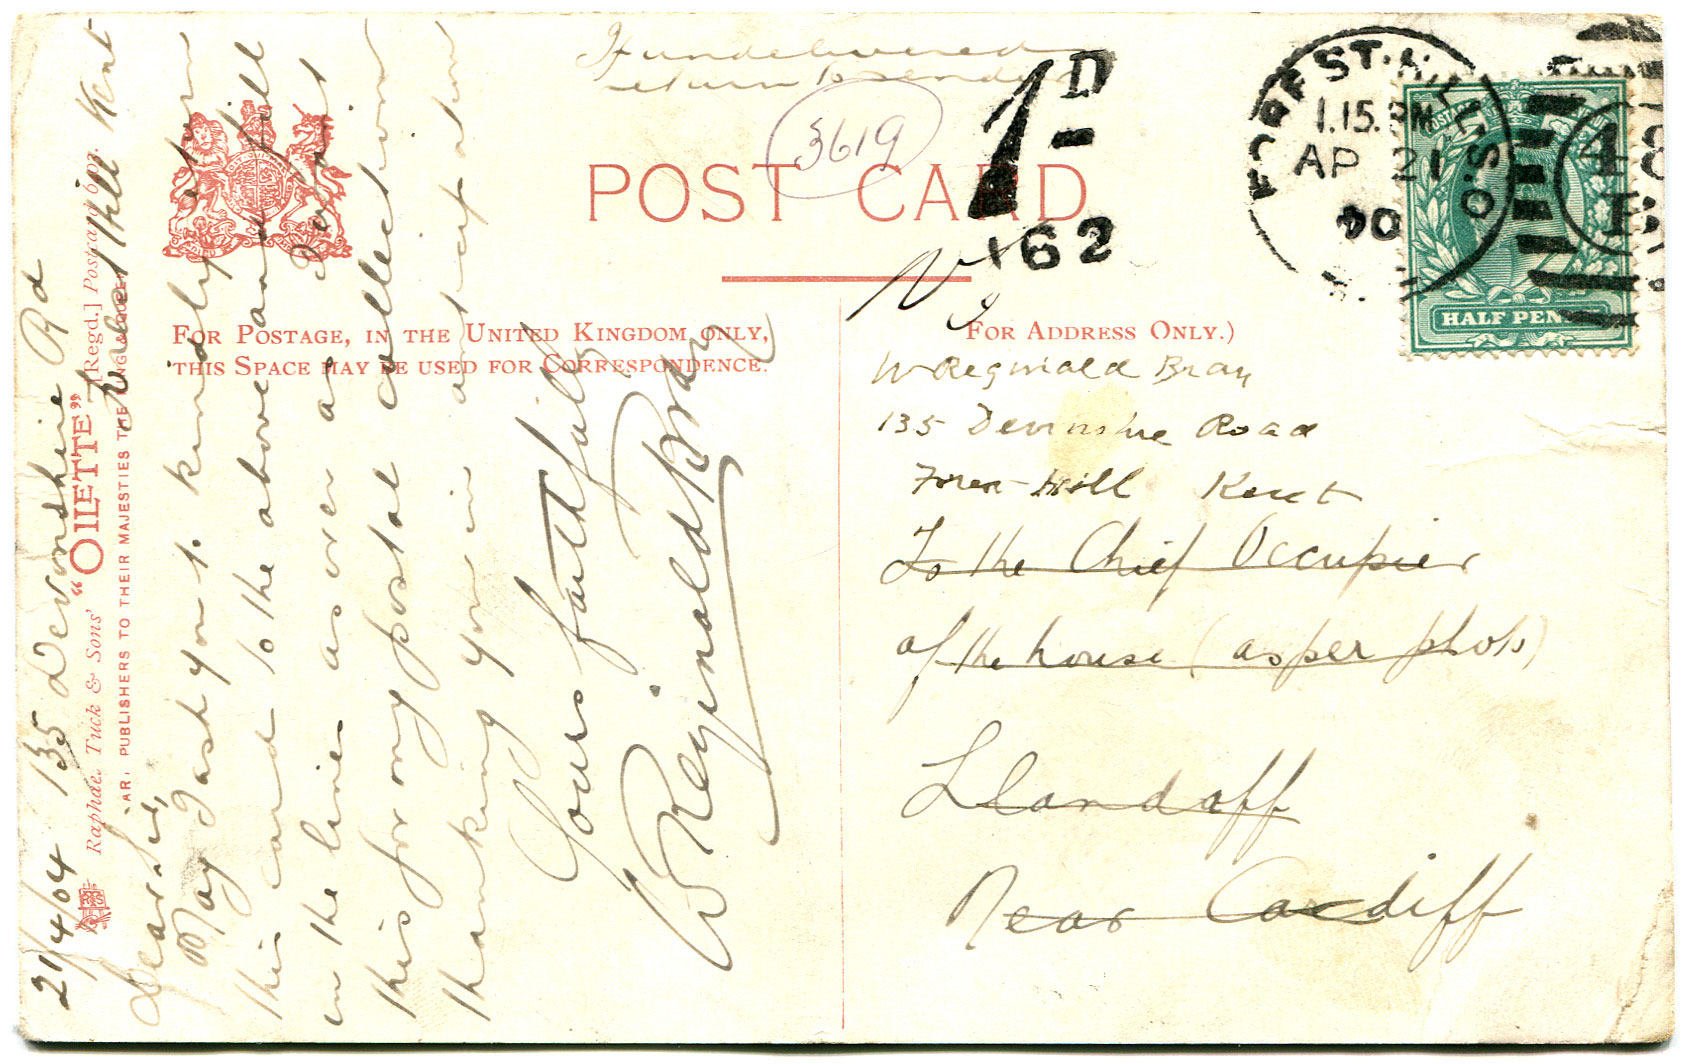 If undelivered
return to sender
3619
POST CARD
1D
162
FOREST·HILL S.O.
1.15.PM
AP 21
04
HALF PENNY
FOR POSTAGE, IN THE UNITED KINGDOM ONLY,
THIS SPACE MAY BE USED FOR CORRESPONDENCE.
FOR ADDRESS ONLY.)
W Reginald Bray
135 Devonshire Road
Forest Hill Kent
To the Chief Occupier
of the house (as per photo)
Llandaff
Near Cardiff
21/4/04 135 Devonshire Rd
Forest Hill Kent
Dear Sir,
May I ask you to kindly return
this card to the above and fill
in the lines as over as
this for my postal collection
thanking you in anticipation
Yours faithfully
W Reginald Bray
Raphael Tuck & Sons' "OILETTE" [Regd.] Postcard 6193.
ART PUBLISHERS TO THEIR MAJESTIES THE KING & QUEEN.